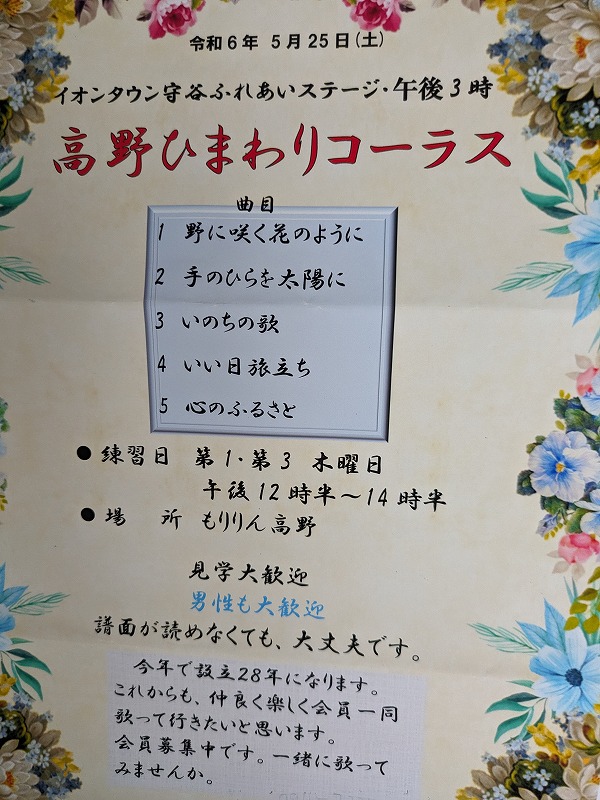 令和6年 5月25日(土)
イオンタウン守谷ふれあいステージ・午後3時
高野ひまわりコーラス
曲目
1 野に咲く花のように
2 手のひらを太陽に
3 いのちの歌
4 いい日旅立ち
5 心のふるさと
● 練習日 第1・第3 木曜日
午後12時半～14時半
● 場 所 もりりん高野
見学大歓迎
男性も大歓迎
譜面が読めなくても、大丈夫です。
今年で設立28年になります。
これからも、仲良く楽しく会員一同
歌って行きたいと思います。
会員募集中です。一緒に歌って
みませんか。